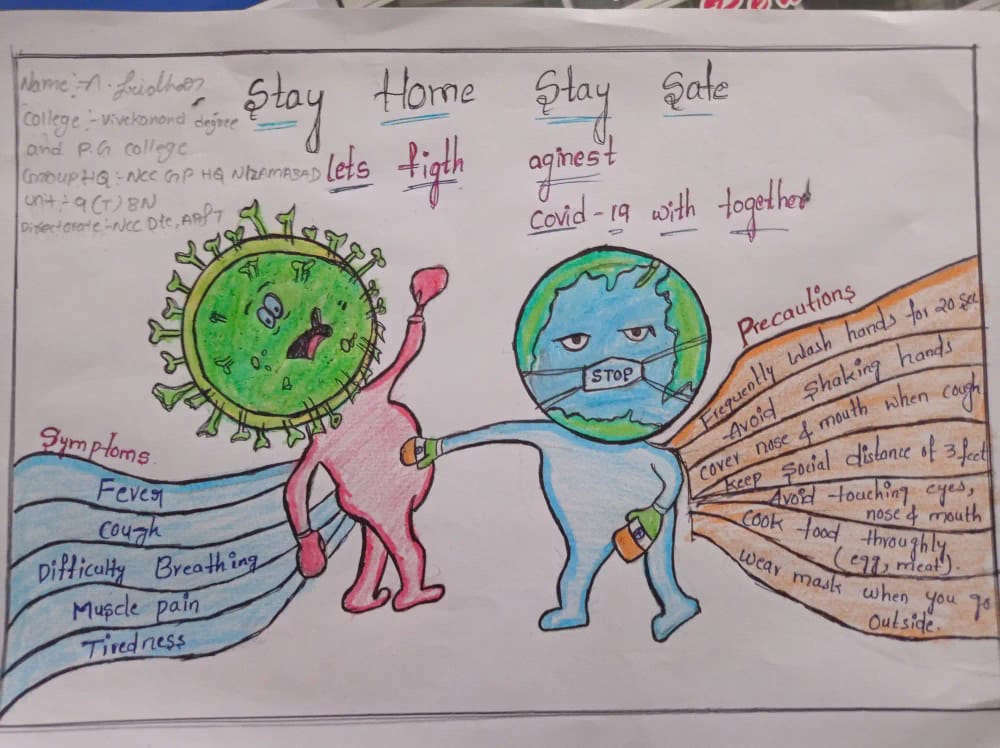 Name :- N. Sridhar
College :- Vivekanand degree
and P.G college
Group HQ :- NCC GP HQ NIZAMABAD
Unit :- 9 (T) BN
Directorate :- NCC Dte, AP&T
Stay Home Stay Safe
lets figth aginest
covid-19 with together
STOP
Symptoms
Fever
Cough
Difficulty Breathing
Muscle pain
Tiredness
Precautions
Frequently wash hands for 20 sec
Avoid shaking hands
cover nose & mouth when cough
keep social distance of 3 feet
Avoid touching eyes,
nose & mouth
Cook food throughly
(egg, meat).
wear mask when you go
outside.